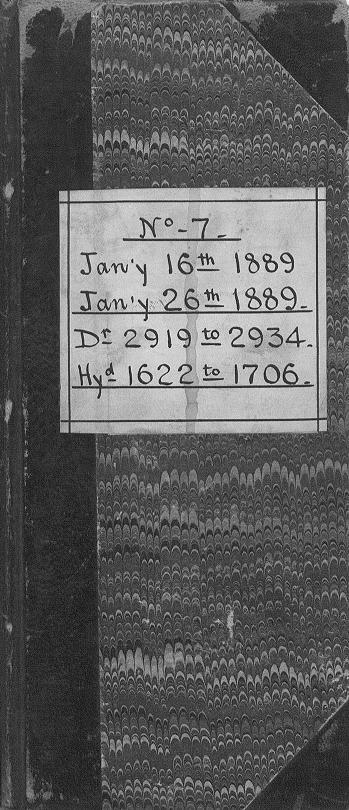 Nº-7-
Jan'y 16th 1889
Jan'y 26th 1889-
Dr 2919 to 2934-
Hyd 1622 to 1706-